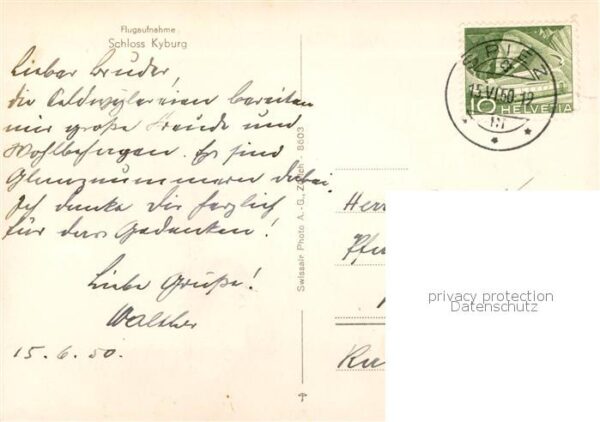 Flugaufnahme
Schloss Kyburg
Lieber Bruder!
die Caldwylereien bereiten
mir große Freude und
Wohlbehagen. Es sind
Glanznummern dabei.
Ich danke Dir herzlich
für das Gedenken!
Liebe Grüße!
Walther
15. 6. 50.
Swissair Photo A.-G., Zürich 8603
SPIEZ
15.VI.50-12
10 HELVETIA
Herr
privacy protection
Datenschutz